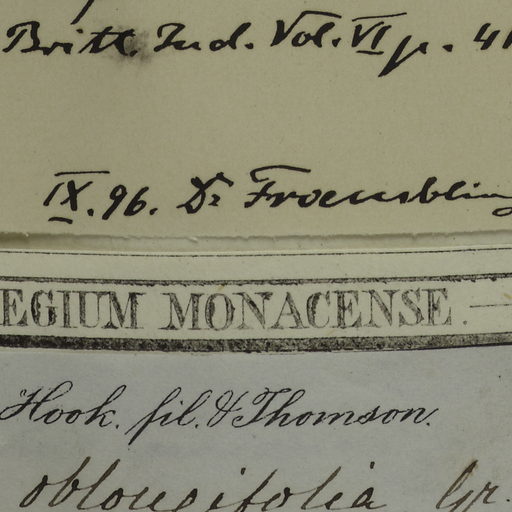 Britt. Ind. Vol. VI p. 41
IX. 96. Dr Froembling
EGIUM MONACENSE.
Hook. fil. & Thomson.
oblongifolia Gr.